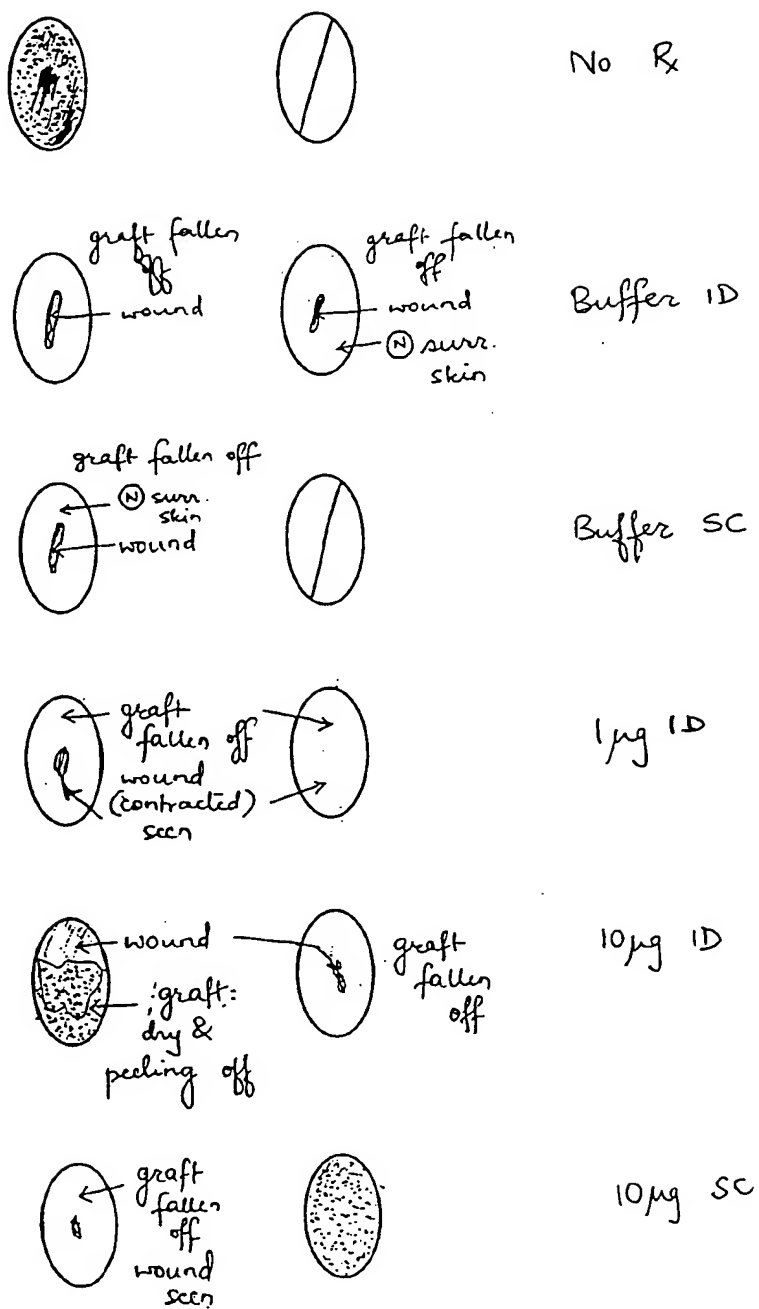 No Rx
graft fallen
off
wound
graft fallen
off
wound
Ⓝ surr.
skin
Buffer ID
graft fallen off
Ⓝ surr.
skin
wound
Buffer SC
graft
fallen off
wound
(contracted)
seen
1 µg ID
wound
graft:
dry &
peeling off
graft
fallen
off
10 µg ID
graft
fallen
off
wound
seen
10 µg SC